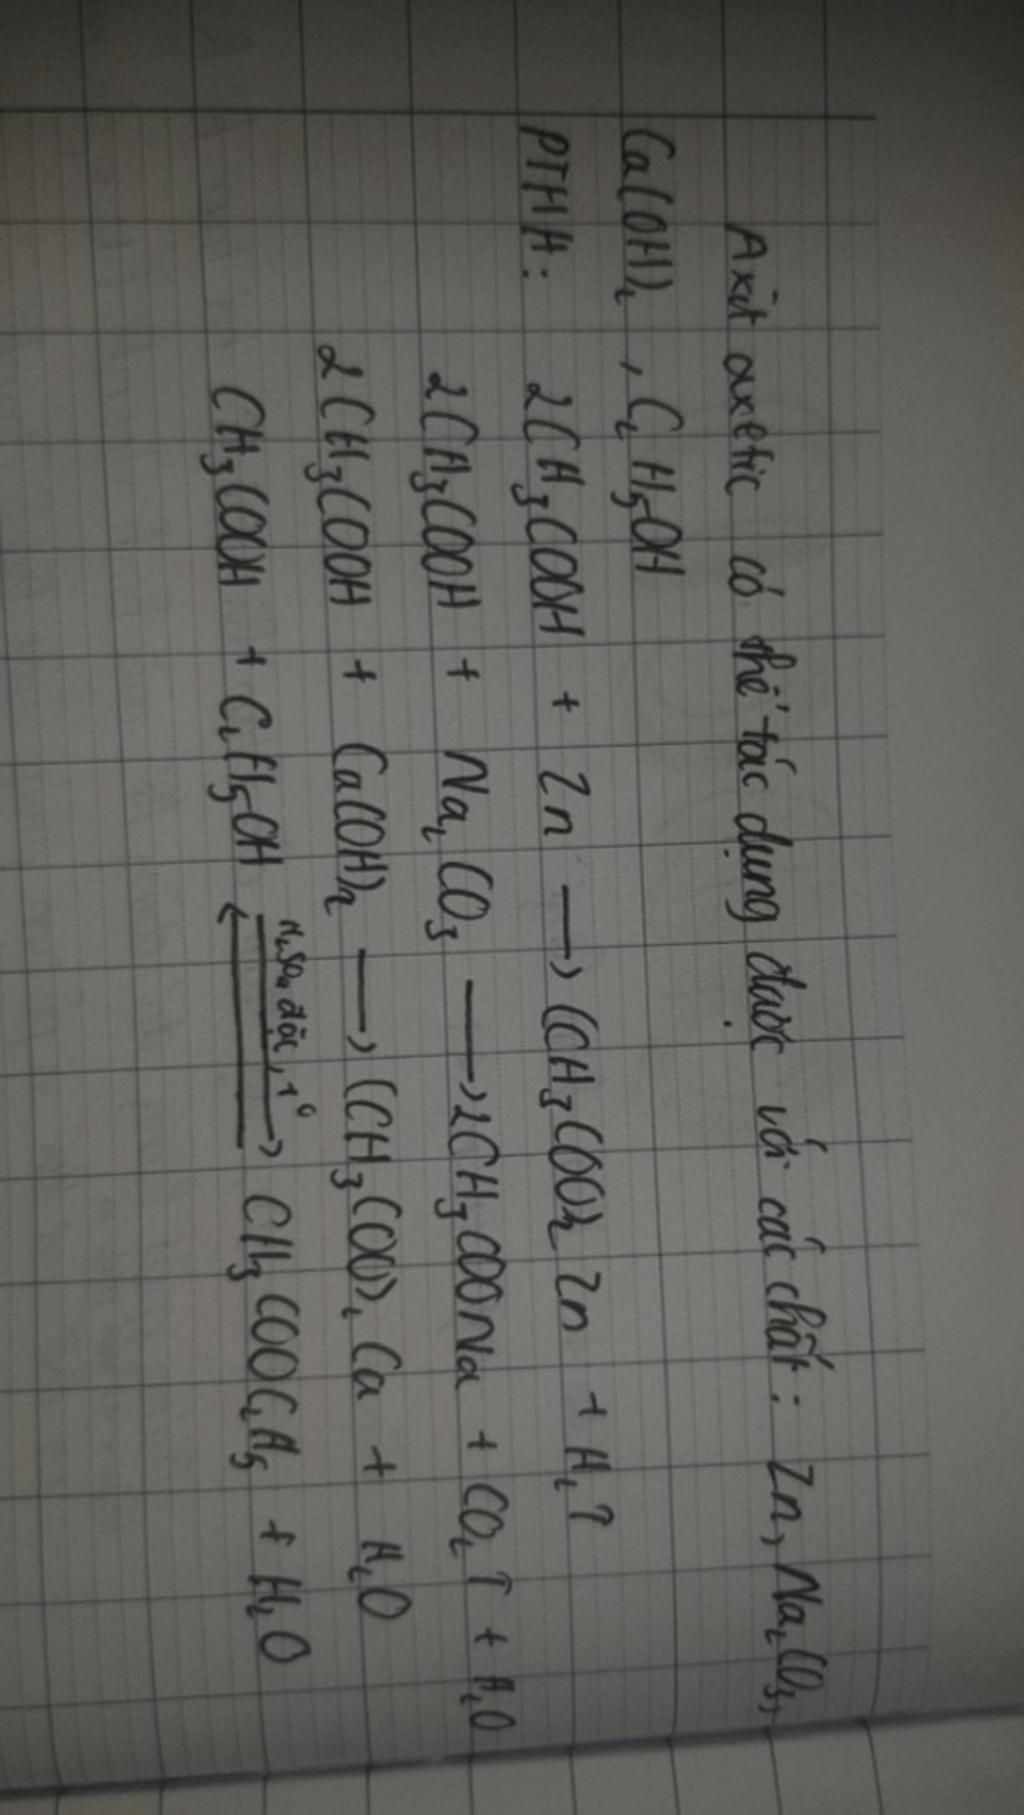 Axit axetic có thể tác dụng được với các chất: Zn, Na₂CO₃,
Ca(OH)₂, C₂H₅OH
PTHH: 2CH₃COOH + Zn ⟶ (CH₃COO)₂Zn + H₂↑
2CH₃COOH + Na₂CO₃ ⟶ 2CH₃COONa + CO₂↑ + H₂O
2CH₃COOH + Ca(OH)₂ ⟶ (CH₃COO)₂Ca + H₂O
CH₃COOH + C₂H₅OH ⇌ H₂SO₄ đặc, t° CH₃COOC₂H₅ + H₂O